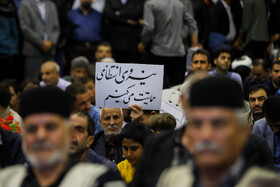 نیروی انتظامی
حمایت می کنیم